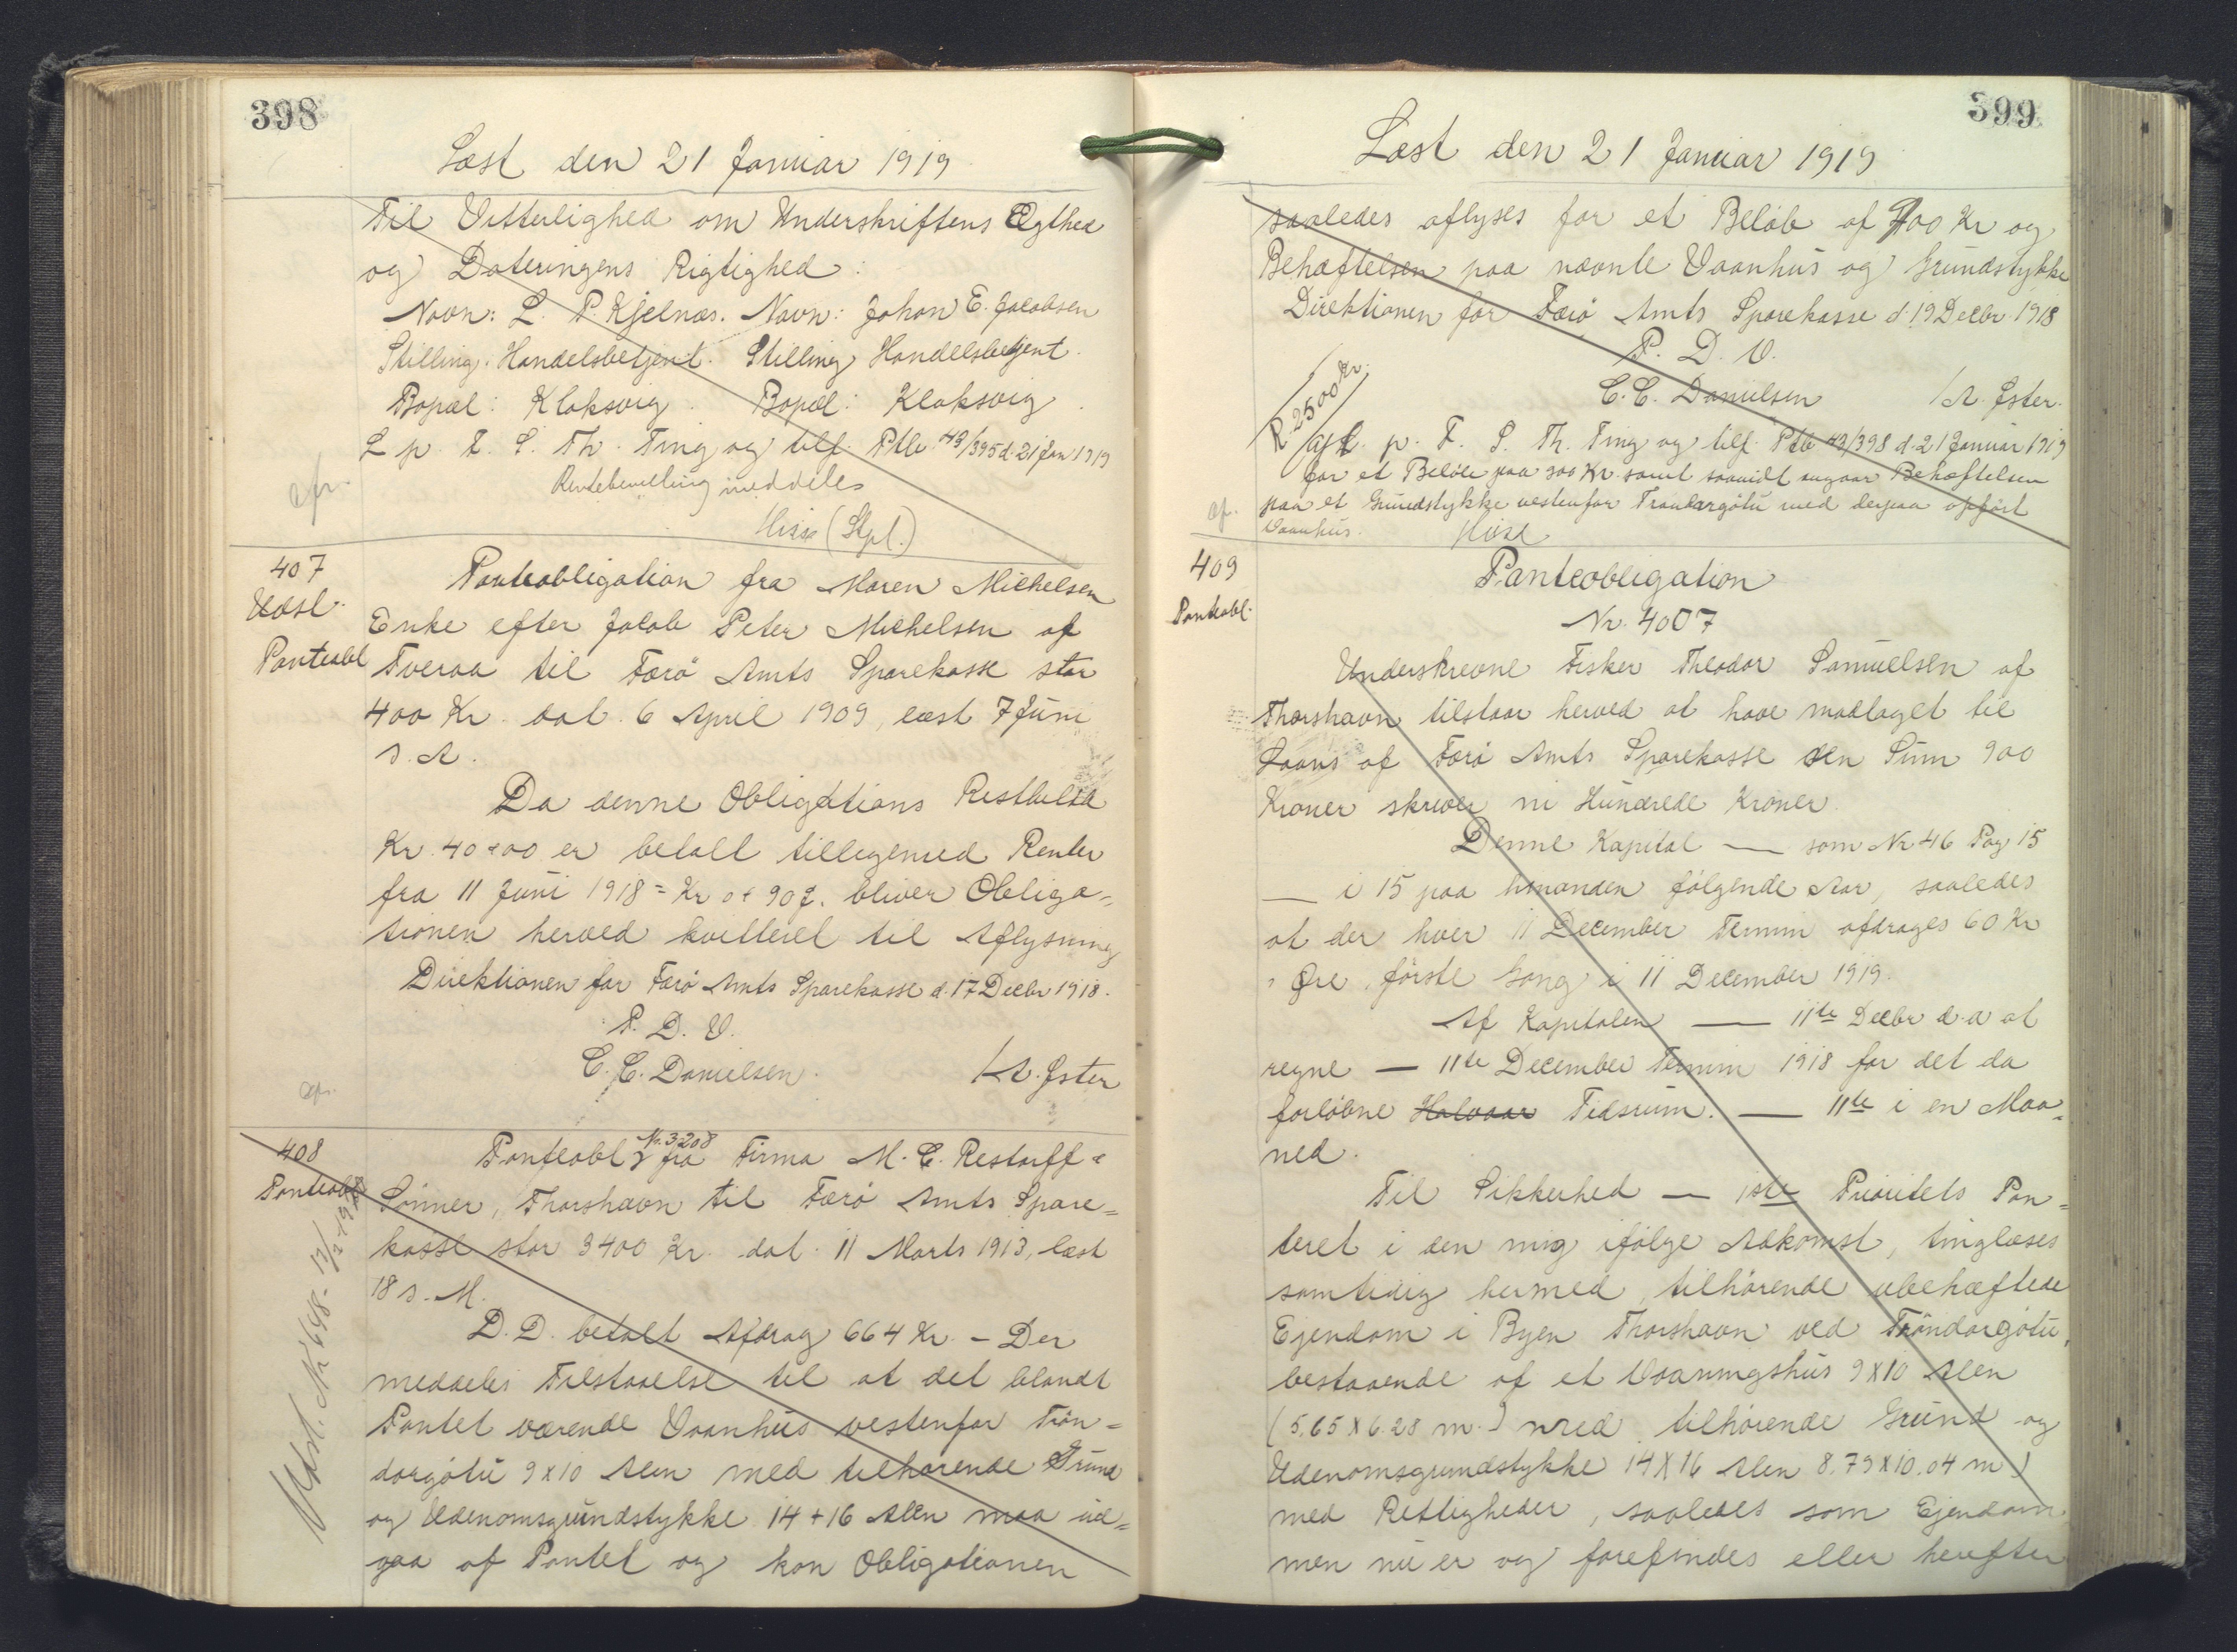 398
Læst den 21 Januar 1919
Til Vitterlighed om Underskriftens Ægthed
og Dateringens Rigtighed:
Navn: L. P. Kjelnæs. Navn: Johan E. Jacobsen
Stilling: Handelsbetjent. Stilling Handelsbetjent.
Bopæl: Klaksvig. Bopæl: Klaksvig.
L p. F. S. Th. Ting og tilf. Ptb. 43/395 d. 21 Jan 1919
Rentebevilling meddeles
(Stpl.)
407
Udsl.
Panteobl
Panteobligation fra Maren Michelsen
Enke efter Jacob Peter Michelsen af
Tveraa til Færö Amts Sparekasse stor
400 Kr. dat. 6 April 1909, læst 7 Juni
s. A.
Da denne Obligations Restbeløb
Kr. 40+00 er betalt tilligemed Renter
fra 11 Juni 1918 = Kr 0+90 ø. bliver Obliga=
tionen herved kvitteret til Aflysning
Direktionen for Færö Amts Sparekasse d. 17 Decbr 1918.
P. D. V.
C. C. Danielsen. / A. Jster
408
Panteobl
Panteobl Nr. 3208 fra Firma M. C. Restorff &
Sönner, Thorshavn til Færö Amts Spare=
kasse stor 3400 Kr. dat. 11 Marts 1913, læst
18 s. M.
D. D. betalt Afdrag 664 Kr. – Der
meddeles Tilstaaelse til at det blandt
Pantet værende Vaanhús vestenfor Trön=
dargötú 9x10 Alen med tilhörende Grund
og Udenomsgrundstykke 14+16 Alen maa ud=
gaa af Pantet og kan Obligationen
399
Læst den 21 Januar 1919
saaledes aflyses for et Beløb af 900 Kr og
Behæftelsen paa nævnte Vaanhus og Grundstykke
Direktionen for Færö Amts Sparekasse d. 19 Decbr. 1918
P. D. V.
C. C. Danielsen / A. Jster.
R. 2500 Kr.
Afl. p. F. S. Th. Ting og tilf. Ptb 43/398 d. 21 Januar 1919
for et Beløb paa 900 Kr. samt saavidt angaar Behæftelsen
paa et Grundstykke vestenfor Trøndargötu med derpaa opført
Vaanhus.
409
Panteobl.
Panteobligation
Nr. 4007
Underskrevne Fisker Theodor Samuelsen af
Thorshavn tilstaar herved at have modtaget til
Laans af Færö Amts Sparekasse den Sum 900
Kroner skriver ni Hundrede Kroner.
Denne Kapital — som Nr 46 Pag 15
— i 15 paa hinanden følgende Aar, saaledes
at der hver 11 December Termin afdrages 60 Kr
" Øre, förste Gang i 11 December 1919.
Af Kapitalen — 11te Decbr d. a at
regne — 11te December Termin 1918 for det da
forløbne Halvaar Tidsrum. — 11te i en Maa=
ned.
Til Sikkerhed — 1ste Prioritets Pan=
teret i den mig ifölge Adkomst, tinglæses
samtidig hermed, tilhörende ubehæftede
Ejendom i Byen Thorshavn ved Tröndargötu,
bestaaende af et Vaaningshus 9x10 Alen
(5,65 x 6.28 m.) med tilhörende Grund og
Udenomsgrundstykke 14x16 Alen 8.79x10.04 m)
med Rettigheder, saaledes som Ejendom
men nu er og forefindes eller herefter